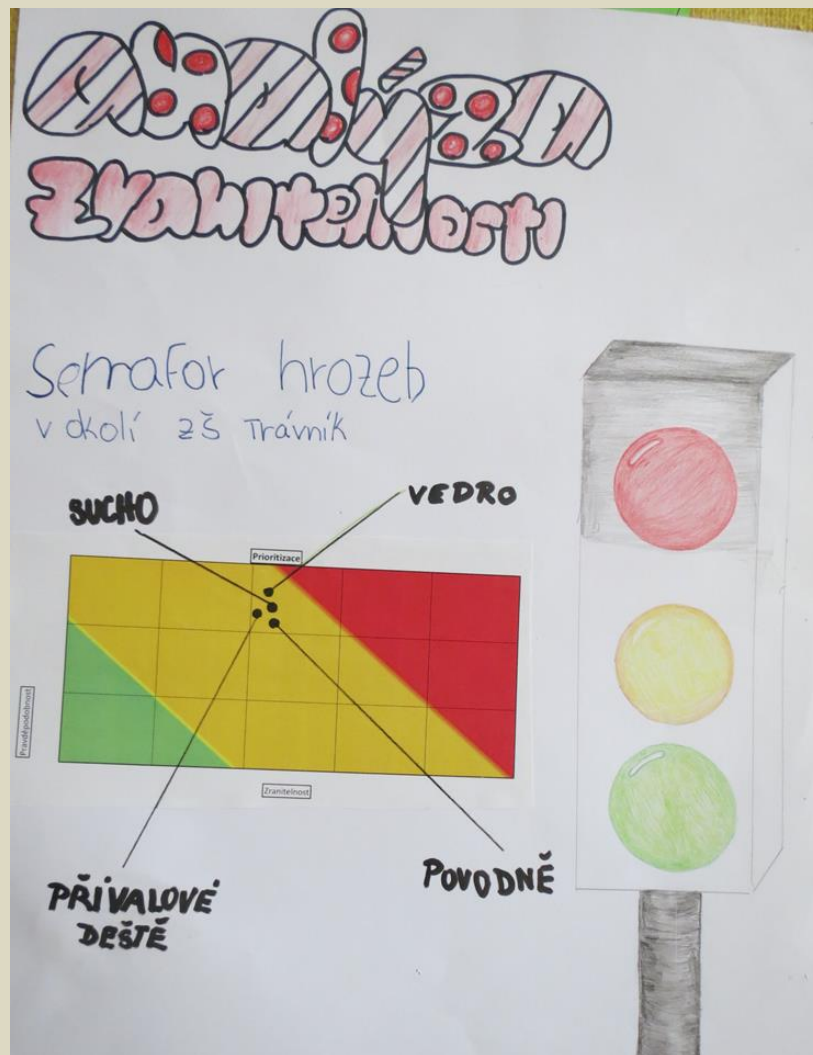 analýza
zranitelnosti
Semafor hrozeb
v okolí ZŠ Trávník
SUCHO
VEDRO
Prioritizace
Pravděpodobnost
Zranitelnost
PŘÍVALOVÉ
DEŠTĚ
POVODNĚ